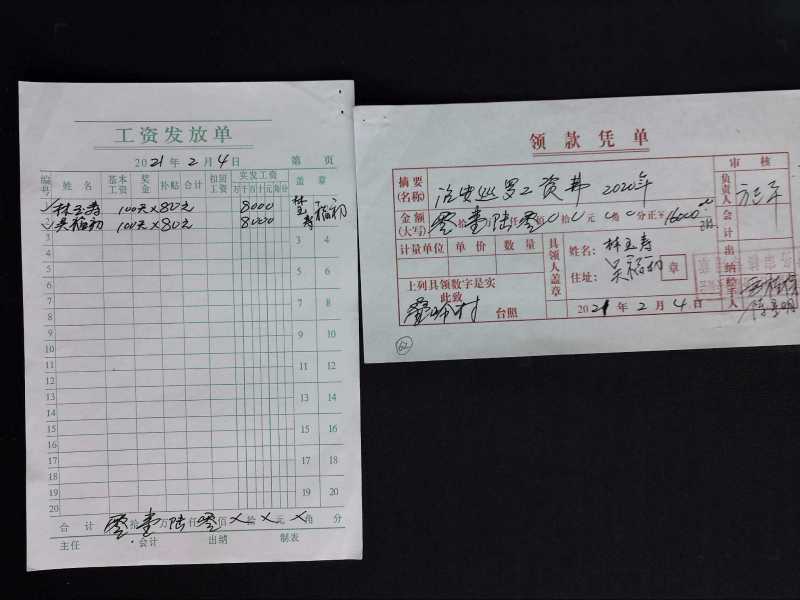 工资发放单
2021年2月4日 第 页
编号 姓名 基本工资 奖金 补贴 合计 扣回工资 实发工资 盖章
万千百十元角分
1 林玉寿 100元×80元 8000 林玉寿
2 吴福初 100元×80元 8000 福初
3 3 4
4
5 5 6
6
7 7 8
8
9 9 10
10
11 11 12
12
13 13 14
14
15 15 16
16
17 17 18
18
19 19 20
20
合计 零拾壹万陆仟零佰×拾×元×角 分
主任 会计 出纳 制表
领款凭单
摘要(名称) 治安巡罗工资费 2020年
审核
负责人
金额(大写) 零拾壹万陆仟零佰0拾0元0角0分正 16000
会计
计量单位 单价 数量
具领人盖章
姓名: 林玉寿
住址: 吴福初
章
出纳
上列具领数字是实
此致
台照
经手人
2021年2月4日
62